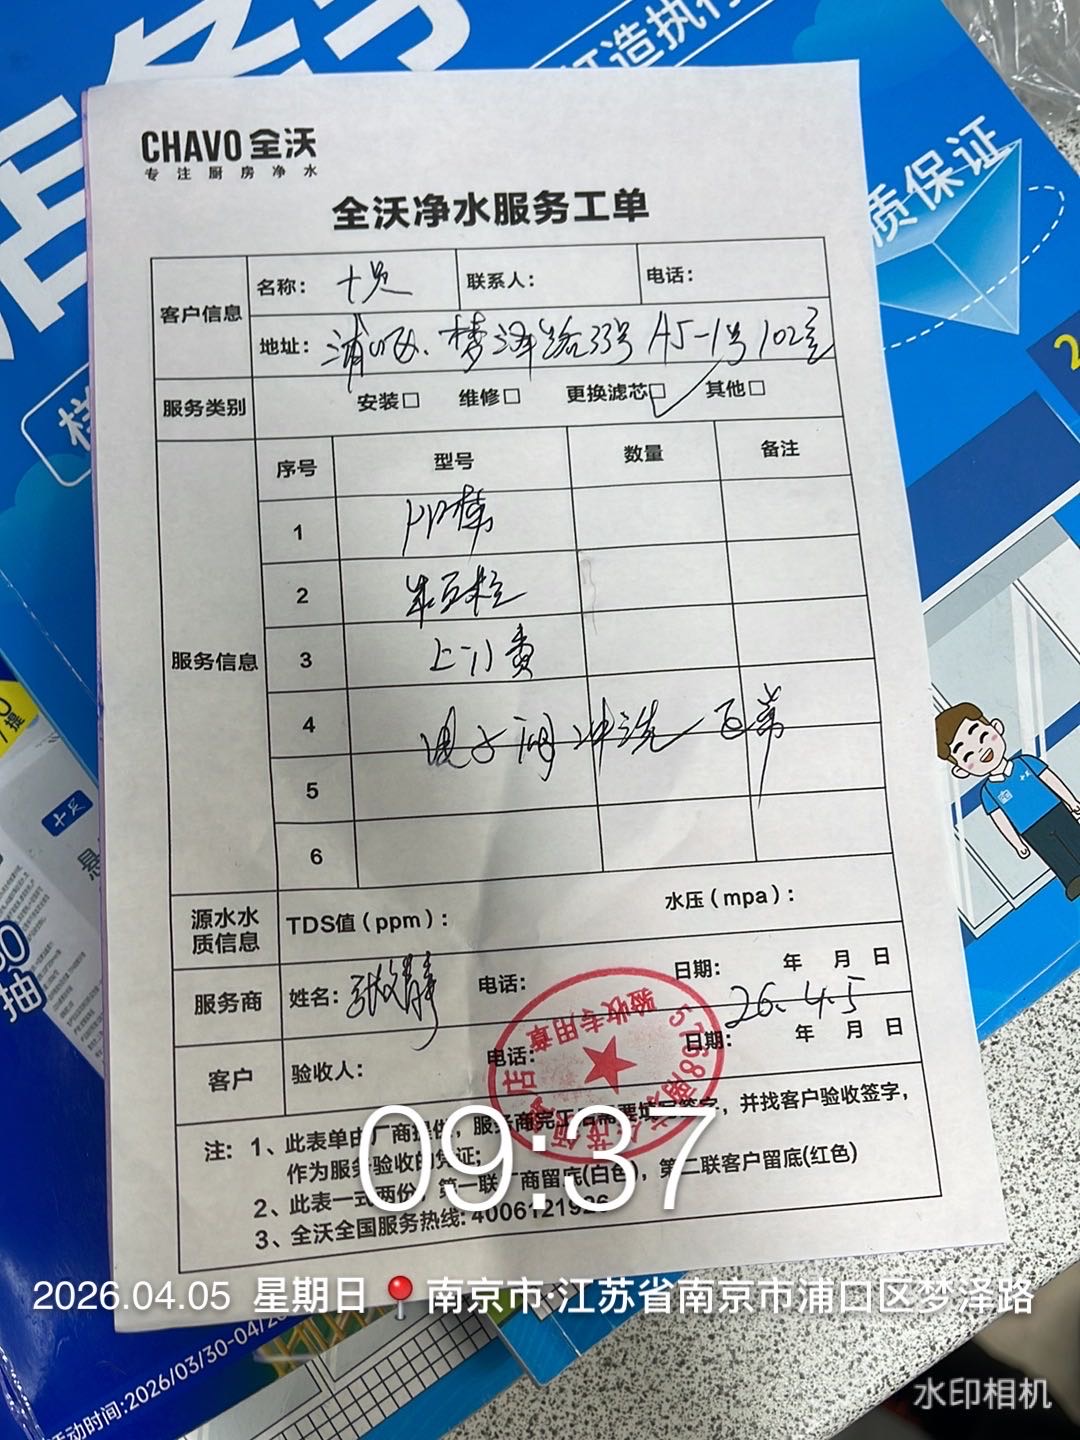 造执行
质保证
CHAVO 全沃
专注厨房净水
全沃净水服务工单
客户信息
名称： 十足
联系人：
电话：
地址： 浦口区、梦泽路33号A5-1号102室
服务类别
安装□ 维修□ 更换滤芯☑ 其他□
服务信息
序号 型号 数量 备注
1 PP棉
2
3 上门费
4 电子阀冲洗一百
5
6
源水水质信息
TDS值（ppm）：
水压（mpa）：
服务商
姓名： 张文静
电话：
日期： 年 月 日
26.4.5
客户
验收人：
电话：
日期： 年 月 日
验收专用章
注：1、此表单由厂商提供，服务商完工后需要填写签字，并找客户验收签字，
作为服务验收的凭证；
2、此表一式两份，第一联厂商留底(白色)，第二联客户留底(红色)
3、全沃全国服务热线：4006121926
09:37
2026.04.05 星期日 南京市·江苏省南京市浦口区梦泽路
活动时间:2026/03/30-04/2
十足
抽
水印相机